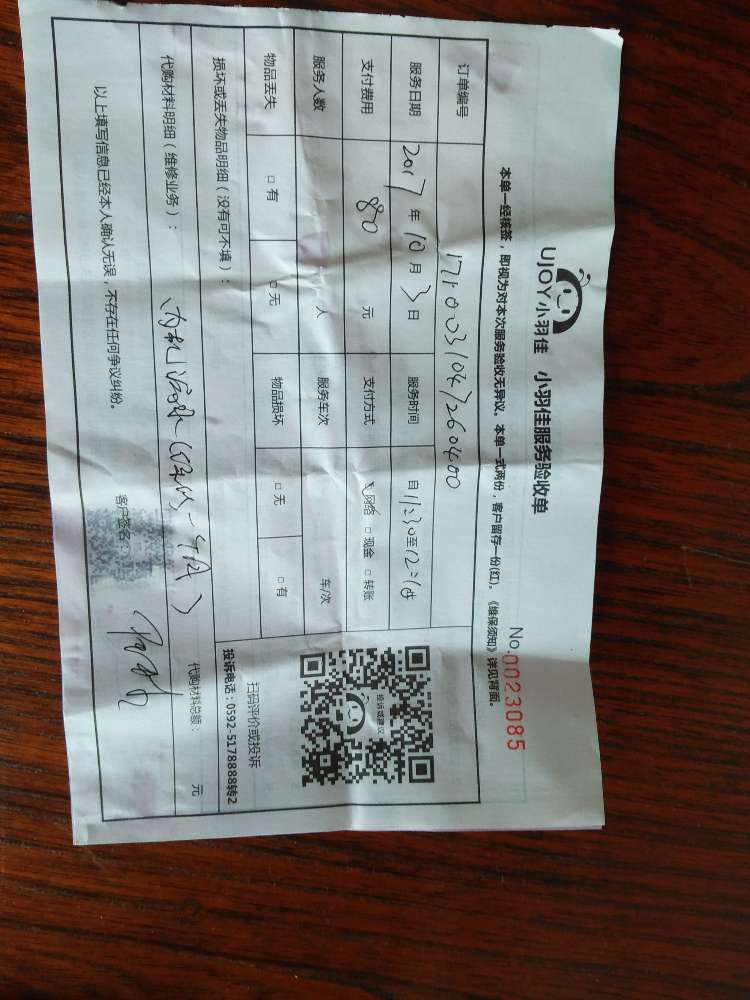 UJOY小羽佳 小羽佳服务验收单
No.0023085
本单一经核签，即视为对本次服务验收无异议。本单一式两份，客户留存一份(红)。《维保须知》详见背面。
订单编号
服务日期 2017年10月3日 服务时间 自11:30至12:
支付费用 80元 支付方式 网络 □现金 □转账
服务人数 人 服务车次 车/次
物品丢失 □有 □无 物品损坏 □无 □有
投诉或建议
扫码评价或投诉
投诉电话：0592-5178888转2
损坏或丢失物品明细（没有可不填）：
代购材料明细（维修业务）： 代购材料总额： 元
以上填写信息已经本人确认无误，不存在任何争议纠纷。
客户签名：